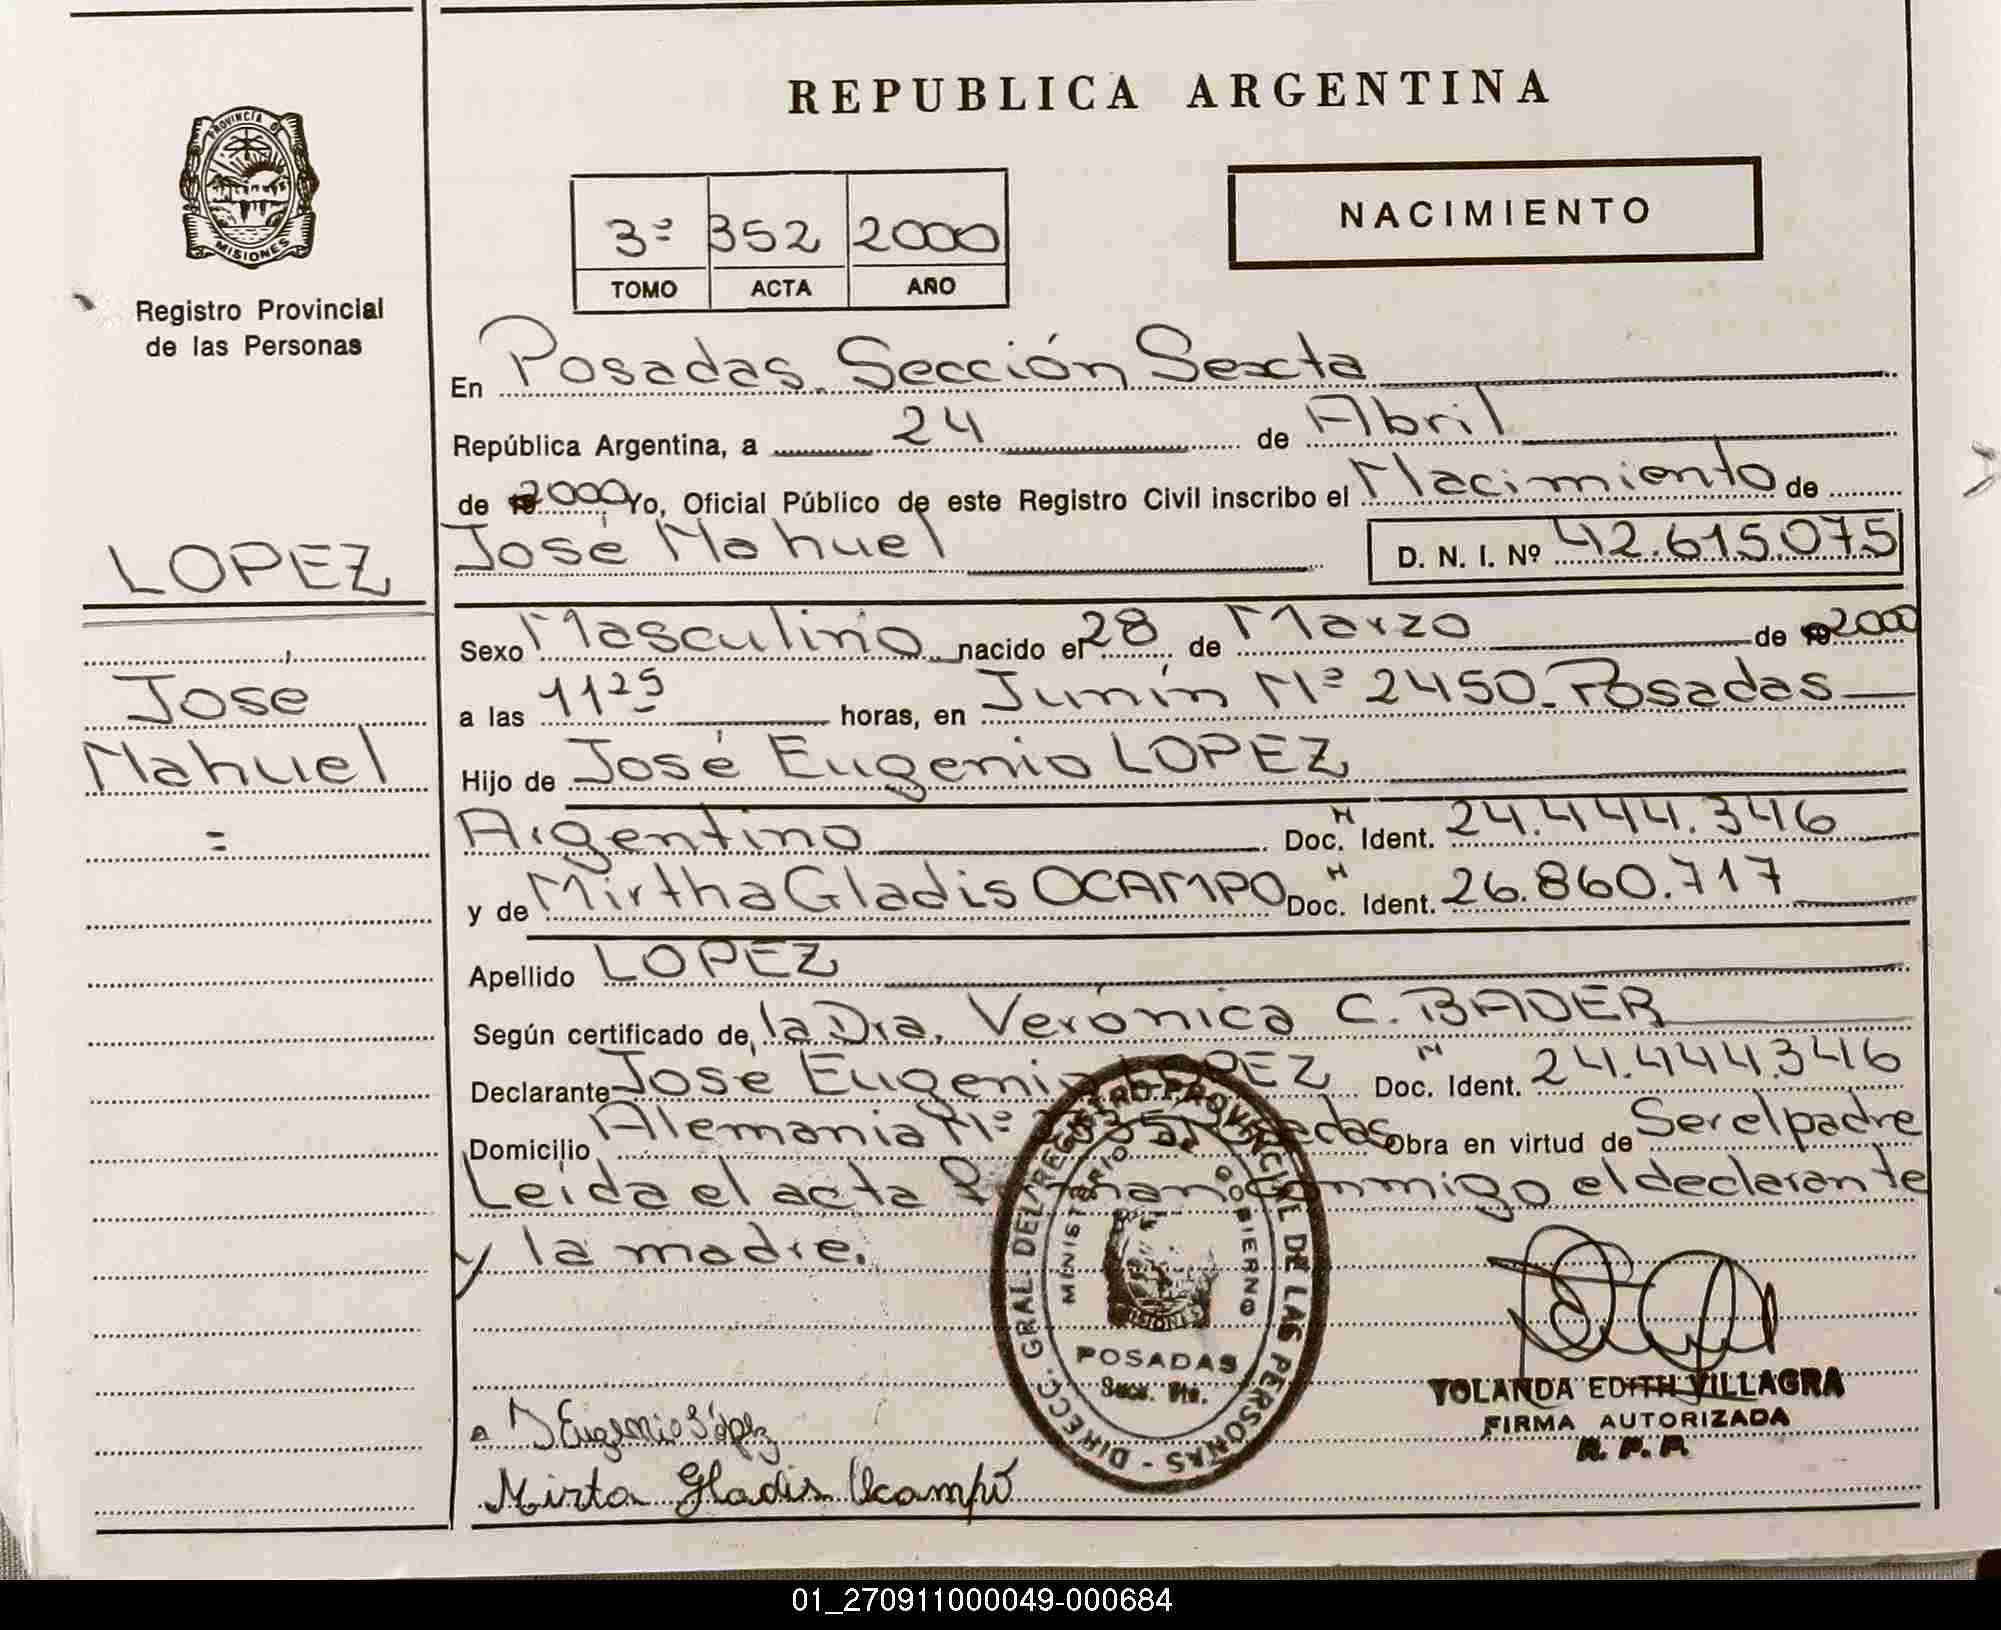 REPUBLICA ARGENTINA
PROVINCIA DE
MISIONES
Registro Provincial
de las Personas
3º 352 2000
TOMO ACTA AÑO
NACIMIENTO
En Posadas. Sección Sexta
República Argentina, a 24 de Abril
de 2000 Yo, Oficial Público de este Registro Civil inscribo el Nacimiento de
LOPEZ
José Nahuel D. N. I. Nº 42.615.075
Sexo Masculino nacido el 28 de Marzo de 2000
José
Nahuel
=
a las 11 25 horas, en Junín Nº 2450. Posadas
Hijo de José Eugenio LOPEZ
Argentino Doc. N Ident. 24.444.346
y de Mirtha Gladis OCAMPO Doc. N Ident. 26.860.717
Apellido LOPEZ
Según certificado de, la Dra. Verónica C. BADER
Declarante José Eugenio LOPEZ Doc. N Ident. 24.444.346
Domicilio Alemania Nº Posadas Obra en virtud de Ser el padre
Leída el acta firman conmigo el declarante
y la madre.
DIRECC. GRAL. DEL REGISTRO PROVINCIAL DE LAS PERSONAS -
MINISTERIO DE GOBIERNO
MISIONES
POSADAS
YOLANDA EDITH VILLAGRA
FIRMA AUTORIZADA
R. P. P.
J Eugenio López
Mirta Gladis Ocampo
01_270911000049-000684